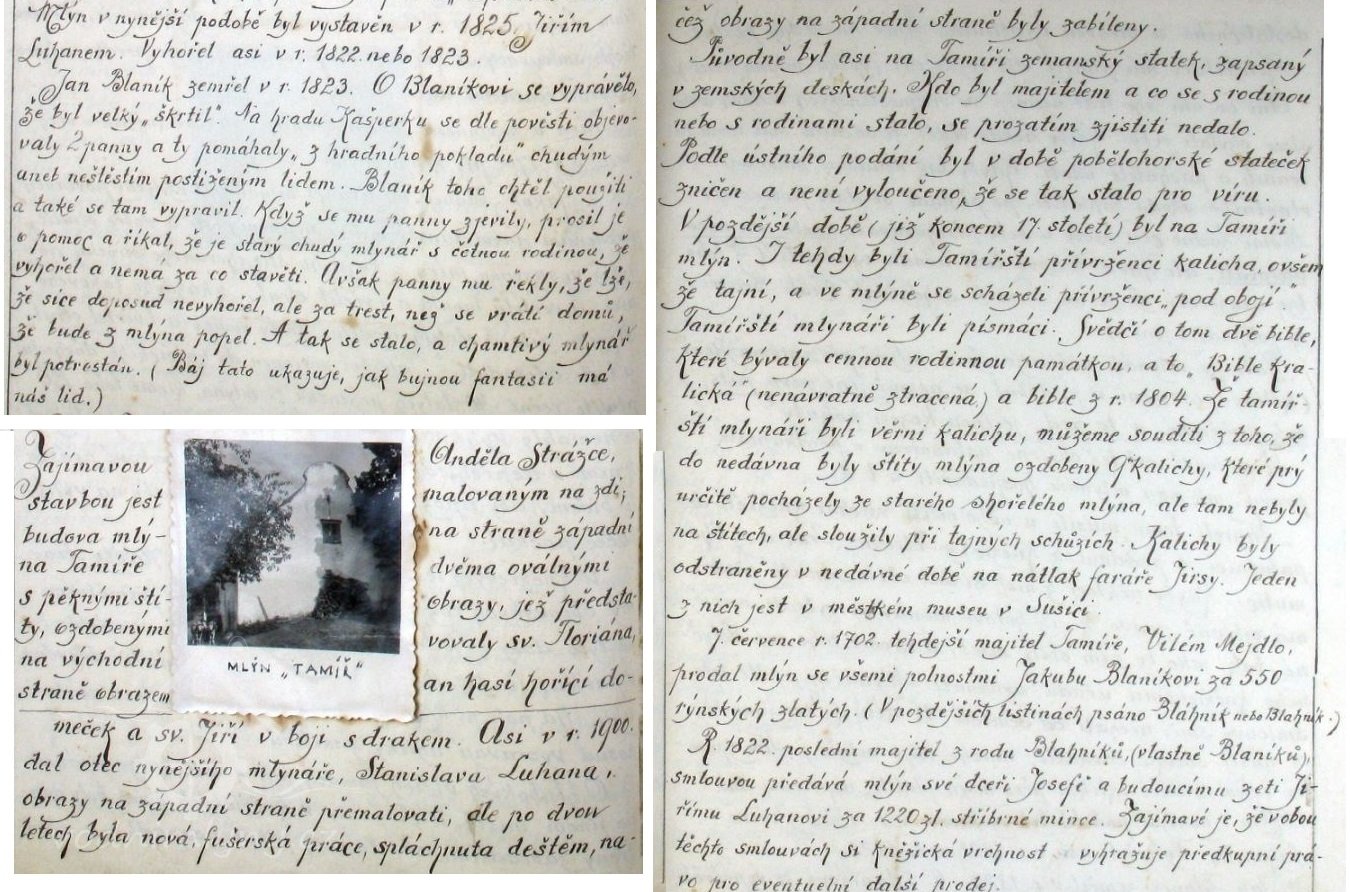 Mlýn v nynější podobě byl vystavěn v r. 1825. Jiřím
Luhanem. Vyhořel asi v r. 1822. nebo 1823.
Jan Blaník zemřel v r. 1823. O Blaníkovi se vyprávělo,
že byl velký „škrtil“. Na hradu Kašperku se dle pověsti objevo-
valy 2 panny a ty pomáhaly „z hradního pokladu“ chudým
aneb neštěstím postiženým lidem. Blaník toho chtěl použíti
a také se tam vypravil. Když se mu panny zjevily, prosil je
o pomoc a říkal, že je starý chudý mlynář s četnou rodinou, že
vyhořel a nemá za co stavěti. Avšak panny mu řekly, že lže,
že sice doposud nevyhořel, ale za trest, než se vrátí domů,
že bude z mlýna popel. A tak se stalo, a chamtivý mlynář
byl potrestán. (Báj tato ukazuje, jak bujnou fantasii má
náš lid.)
Zajímavou
stavbou jest
budova mlý-
na Tamíře
s pěknými ští-
ty, ozdobenými
na východní
straně obrazem
MLÝN „TAMÍŘ“
Anděla Strážce,
malovaným na zdi;
na straně západní
dvěma oválnými
obrazy, jež předsta-
vovaly sv. Floriána,
an hasí hořící do-
meček a sv. Jiří v boji s drakem. Asi v r. 1900.
dal otec nynějšího mlynáře, Stanislava Luhana,
obrazy na západní straně přemalovati, ale po dvou
letech byla nová, fušerská práce, spláchnuta deštěm, na-
čež obrazy na západní straně byly zabíleny.
Původně byl asi na Tamíři zemanský statek, zapsaný
v zemských deskách. Kdo byl majitelem a co se s rodinou
nebo s rodinami stalo, se prozatím zjistiti nedalo.
Podle ústního podání byl v době pobělohorské stateček
zničen a není vyloučeno, že se tak stalo pro víru.
V pozdější době (již koncem 17. století) byl na Tamíři
mlýn. I tehdy byli Tamířští přívrženci kalicha, ovšem
že tajní, a ve mlýně se scházeli přívrženci „pod obojí“.
Tamířští mlynáři byli písmáci. Svědčí o tom dvě bible,
které bývaly cennou rodinnou památkou, a to „Bible kra-
lická“ (nenávratně ztracená) a bible z r. 1804. Že tamíř-
ští mlynáři byli věrni kalichu, můžeme souditi z toho, že
do nedávna byly štíty mlýna ozdobeny kalichy, které prý
určitě pocházely ze starého shořelého mlýna, ale tam nebyly
na štítech, ale sloužily při tajných schůzích. Kalichy byly
odstraněny v nedávné době na nátlak faráře Jirsy. Jeden
z nich jest v městkém museu v Sušici.
7. července r. 1702. tehdejší majitel Tamíře, Vilém Mejdlo,
prodal mlýn se všemi polnostmi Jakubu Blaníkovi za 550
rýnských zlatých. (V pozdějších listinách psáno Bláhník nebo Blahník.)
R. 1822. poslední majitel z rodu Blahníků, (vlastně Blaníků),
smlouvou předává mlýn své dceři Josefě a budoucímu zeti Ji-
římu Luhanovi za 1220 zl. stříbrné mince. Zajímavé je, že v obou
těchto smlouvách si kněžická vrchnost vyhražuje předkupní prá-
vo pro eventuelní další prodej.